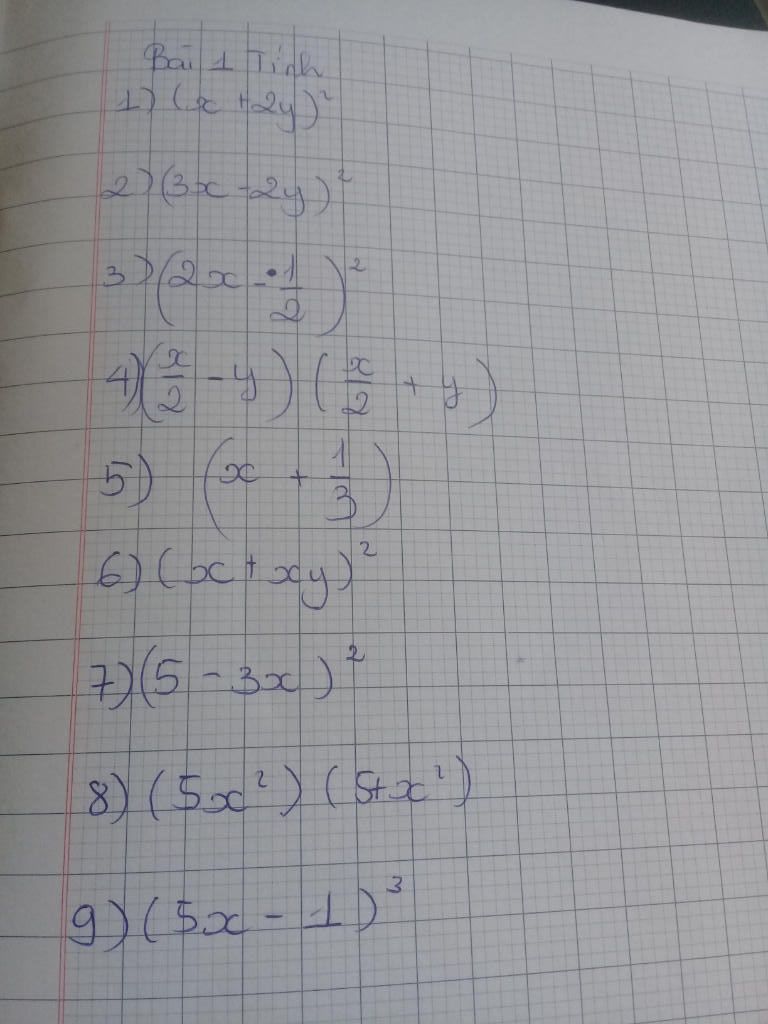 Bài 1 Tính
1) (x + 2y)²
2) (3x - 2y)²
3) (2x - 1/2)²
4) (x/2 - y) (x/2 + y)
5) (x + 1/3)
6) (x + xy)²
7) (5 - 3x)²
8) (5x²) (5+x²)
9) (5x - 1)³